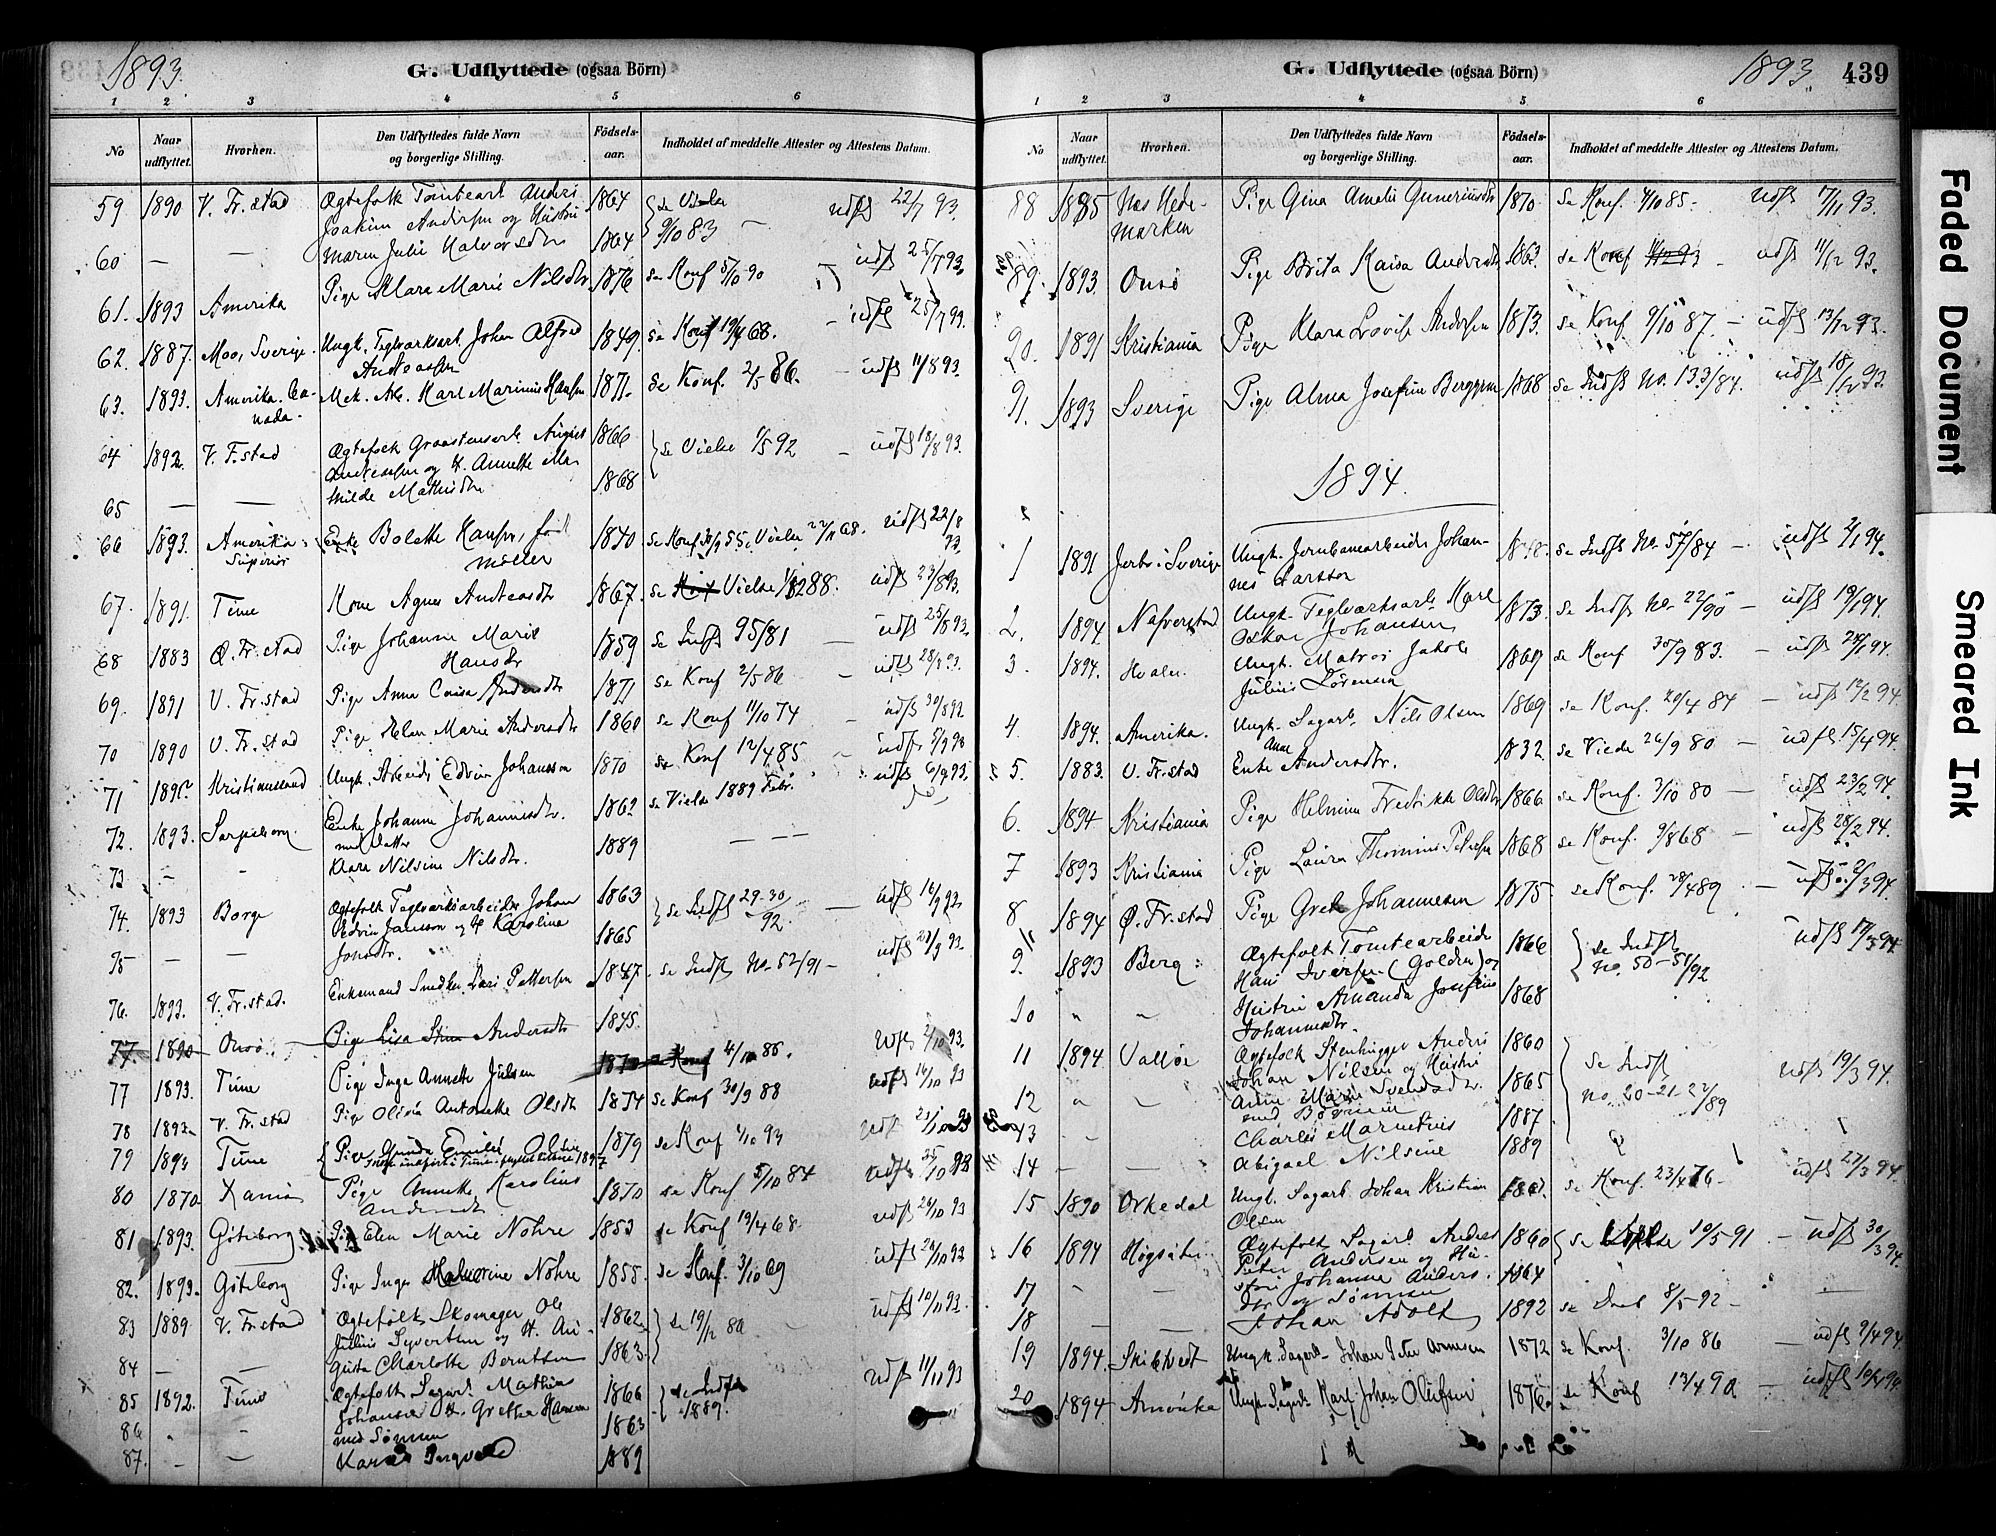 1893.
G. Udflyttede (ogsaa Börn)
1 2 3 4 5 6
No
Naar udflyttet.
Hvorhen.
Den Udflyttedes fulde Navn og borgerlige Stilling.
Födsels-aar.
Indholdet af meddelte Attester og Attestens Datum.
59 1890 V. Fr.stad Ægtefolk Tomtearb Anders 1864 se Vielse udst 22/7 93.
Joakim Andersen og Hustru
60 — — Maren Julie Halvorsdtr 1864 9/10 83 —
Pige Klara Marie Nilsdtr 1876 se Konf 5/10 90 udst 25/7 93
61. 1893 Amerika
62. 1887. Moss, Sverige. Ungk. Teglværksarb. Johan Alfred 1849. se Konf 19/4 68. — udst 25/7 93.
Andreassen
63. 1893. Amerika. Ca- Mek. Arb. Karl Marinus Hansen 1871. se Konf. 2/5 86. — udst 11/8 93.
nada.
64 1892. V. F.stad Ægtefolk Graastensarb. August 1866 se Vielse 1/5 92 — udst 18/8 93.
Andreassen og H. Annette Ma-
65 — — thilde Mathisdtr 1868
66 1893. Amerika Enke Bolette Hansen, föd 1840 se Konf 30/9 55. Vielse 22/11 68. udst 22/8 93.
Superior Møller
67. 1891. Tune Kone Agnes Andreasdtr 1867. se Vielse 1888. udst 23/8 93.
68 1883 Ø. Fr.stad Pige Johanne Marie 1859 se Indst 95/81 — udst 25/8 93.
Hansdtr
69. 1891 V. Fr.stad Pige Anna Caisa Andersdtr 1871 se Konf 2/5 86 — udst 28/8 93.
70 1890 V. Fr.stad Pige Elen Marie Andersdtr 1860 se Konf 11/10 74 — udst 30/8 93
71 Kristianssand Ungk. Arbeider Edvin Johansson 1870 se Konf 12/4 85 — udst 5/9 93
72. 1893. Sarpsborg. Enke Johanne Johannisdtr. 1862 se Vielse 1889 Febr. udst 6/9 93.
med datter
73 — - Klara Nilsine Nilsdtr. 1889 — —
74. 1893 Borge Ægtefolk Teglværksarbeider Johan 1863 se Indst 29-30/92 — udst 16/9 93
Edvin Jansson og H Karolina
75 — — Jonsdtr. 1865
76. 1893. V. Fr.stad. Enkemand Snedker Lars Pettersen 1847 se Indst No. 52/91 — udst 23/9 93.
77. 1890 Onsö. Pige Lisa Stina Andersdtr 1845
77 1893. Tune Pige Inga Annette Julsen 1870 se Konf 4/10 86. udst 2/10 93.
78 1893 V. Fr.stad Pige Olivia Antonette Olsdtr 1874 se Konf 30/9 88 udst 14/10 93
79 1893 Tune Pige Gunda Emilie Olsen 1879 se Konf 1/10 93 udst 21/10 93
80 1870 Xania Pige Annette Karoline 1870 se Konf 5/10 84 udst 25/10 93
Andersdtr
81 1893. Göteborg Pige Elen Marie Nohre 1853 se Konf 19/4 68. udst 26/10 93
82. 1893. Göteborg Pige Inger Halvorine Nohre 1855. se Konf. 3/10 69 udst 26/10 93
83 1889 V. Fr.stad Ægtefolk Skomager Ole 1862 se 19/12 80 udst 10/11 93.
Julius Syvertsen og H. Au-
84 — — gusta Charlotte Berntsen 1863.
85 1892. Tune Ægtefolk Sagarb. Mathias 1866 se Indst 1889. udst 11/11 93
Johansen H. Grethe Hansen 1863
86 . - med Sønnen
87. — - Karl Ingvald 1889
G. Udflyttede (ogsaa Börn)
1893.
439
1 2 3 4 5 6
No
Naar udflyttet.
Hvorhen.
Den Udflyttedes fulde Navn og borgerlige Stilling.
Födsels-aar.
Indholdet af meddelte Attester og Attestens Datum.
88 1885 Næs Hede- Pige Gina Amalie Guneriusdtr 1870 se Konf. 4/10 85- udst 17/11 93.
marken
89. 1893. Onsö Pige Brita Kaisa Andersdtr 1863. se Konf - udst 11/12 93.
90. 1891 Kristiania Pige Klara Lovise Andersen 1873. se Konf 9/10 87. — udst 13/12 93.
91. 1893 Sverige Pige Alma Josefine Berggren 1868 se Indst No. 133/84. udst 18/12 93.
1894.
1 1891 Jerbo i Sverige Ungk. Jernbanearbeider Johan- se Indst No. 57/84 — udst 2/1 94.
nes Larsson
2. 1894. Nafverstad Ungk. Teglværksarb. Karl 1873. se Indst No. 22/90 — udst 19/1 94.
Oskar Johansen
3. 1894. Hvaler. Ungk. Matros Jakob 1867 se Konf 30/9 83. — udst 24/1 94.
Julius Sörensen
4 1894. Amerika. Ungk. Sagarb. Nils Olsen 1869 se Konf. 20/4 84 — udst 12/2 94.
5. 1883. V. Fr.stad Enke Anne Andersdtr. 1832 se Viede 26/9 80 — udst 15/4 94.
6. 1894 Kristiania Pige Helmine Fredrikke Olsdtr 1866 se Konf. 3/10 80 — udst 23/2 94.
7 1893 Kristiania Pige Laura Thomine Petersen 1868 se Konf. 9/8 68 — udst 28/2 94.
8 1894 Ø. Fr.stad Pige Grete Johannesen 1875 se Konf. 28/4 89 — udst. 9/3 94.
9. 1893 Berg: Ægtefolk Tomtearbeider 1866 se Indst no. 50-51/92 udst 17/3 94.
Hans Iversen (Golden) og
10 " ~ Hustru Amanda Josefine 1868
Johannesdtr.
11 1894 Vallöe Ægtefolk Stenhugger Anders 1860 se Indst no. 20-21-22/89 udst 19/3 94.
Johan Nilsen og Hustru
12 " ~ Anne Marie Svendsdtr. 1865
med Börnene
13 - Charles Marnetius 1887
14 — — Abigael Nilsine 1889
15 1890 Orkedal Ungk. Sagarb. Johan Kristian se Konf. 23/4 76 - udst 27/3 94.
Olsen
16 1894 Högsäter Ægtefolk Sagarb. Anders 1860 se 10/5 91 — udst 30/3 94.
Peter Andersen og Hu-
17 - — stru Johanne Anders. 1864
dtr og Sønnen
18 — — Johan Adolf 1892 se Daab 8/5 92 - —
19 1894. Skibtvedt Ungk. Sagarb. Johan Peter Arnesen 1872 se Konf. 3/10 86 — udst 9/4 94.
20 1894 Amerika Ungk. Sagarb Karl Johan Olufsen 1876. se Konf 13/4 90 — udst 10/4 94.
Faded Document
Smeared Ink